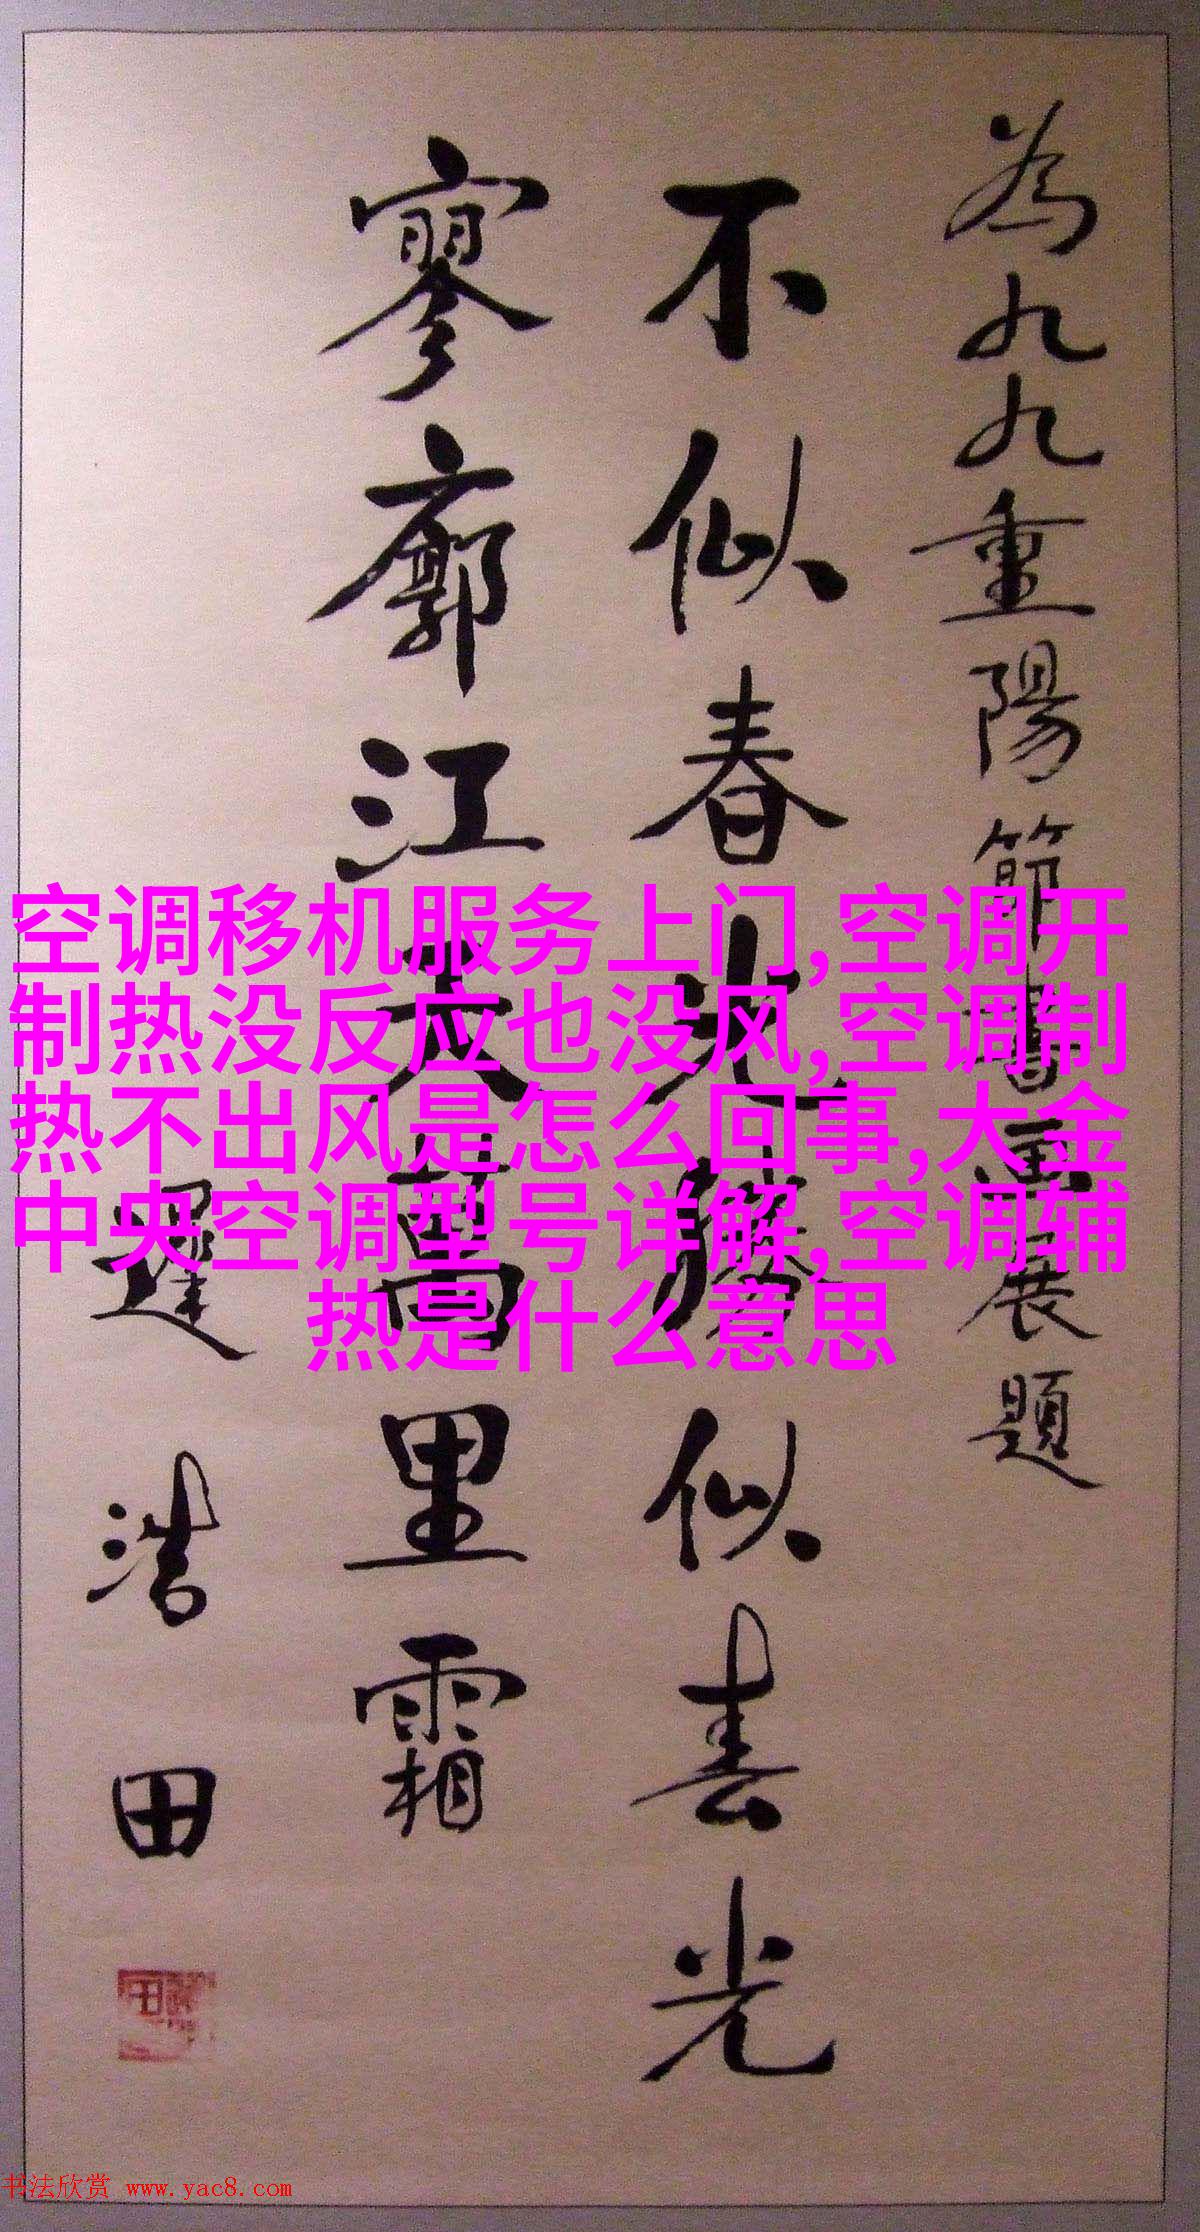 為九九重陽節書画展題
不似春光勝似春光
寥廓江天萬里霜
遲浩田
空调移机服务上门,空调开
制热没反应也没风,空调制
热不出风是怎么回事,大金
中央空调型号详解,空调辅
热是什么意思
书法欣赏 www.yac8.com